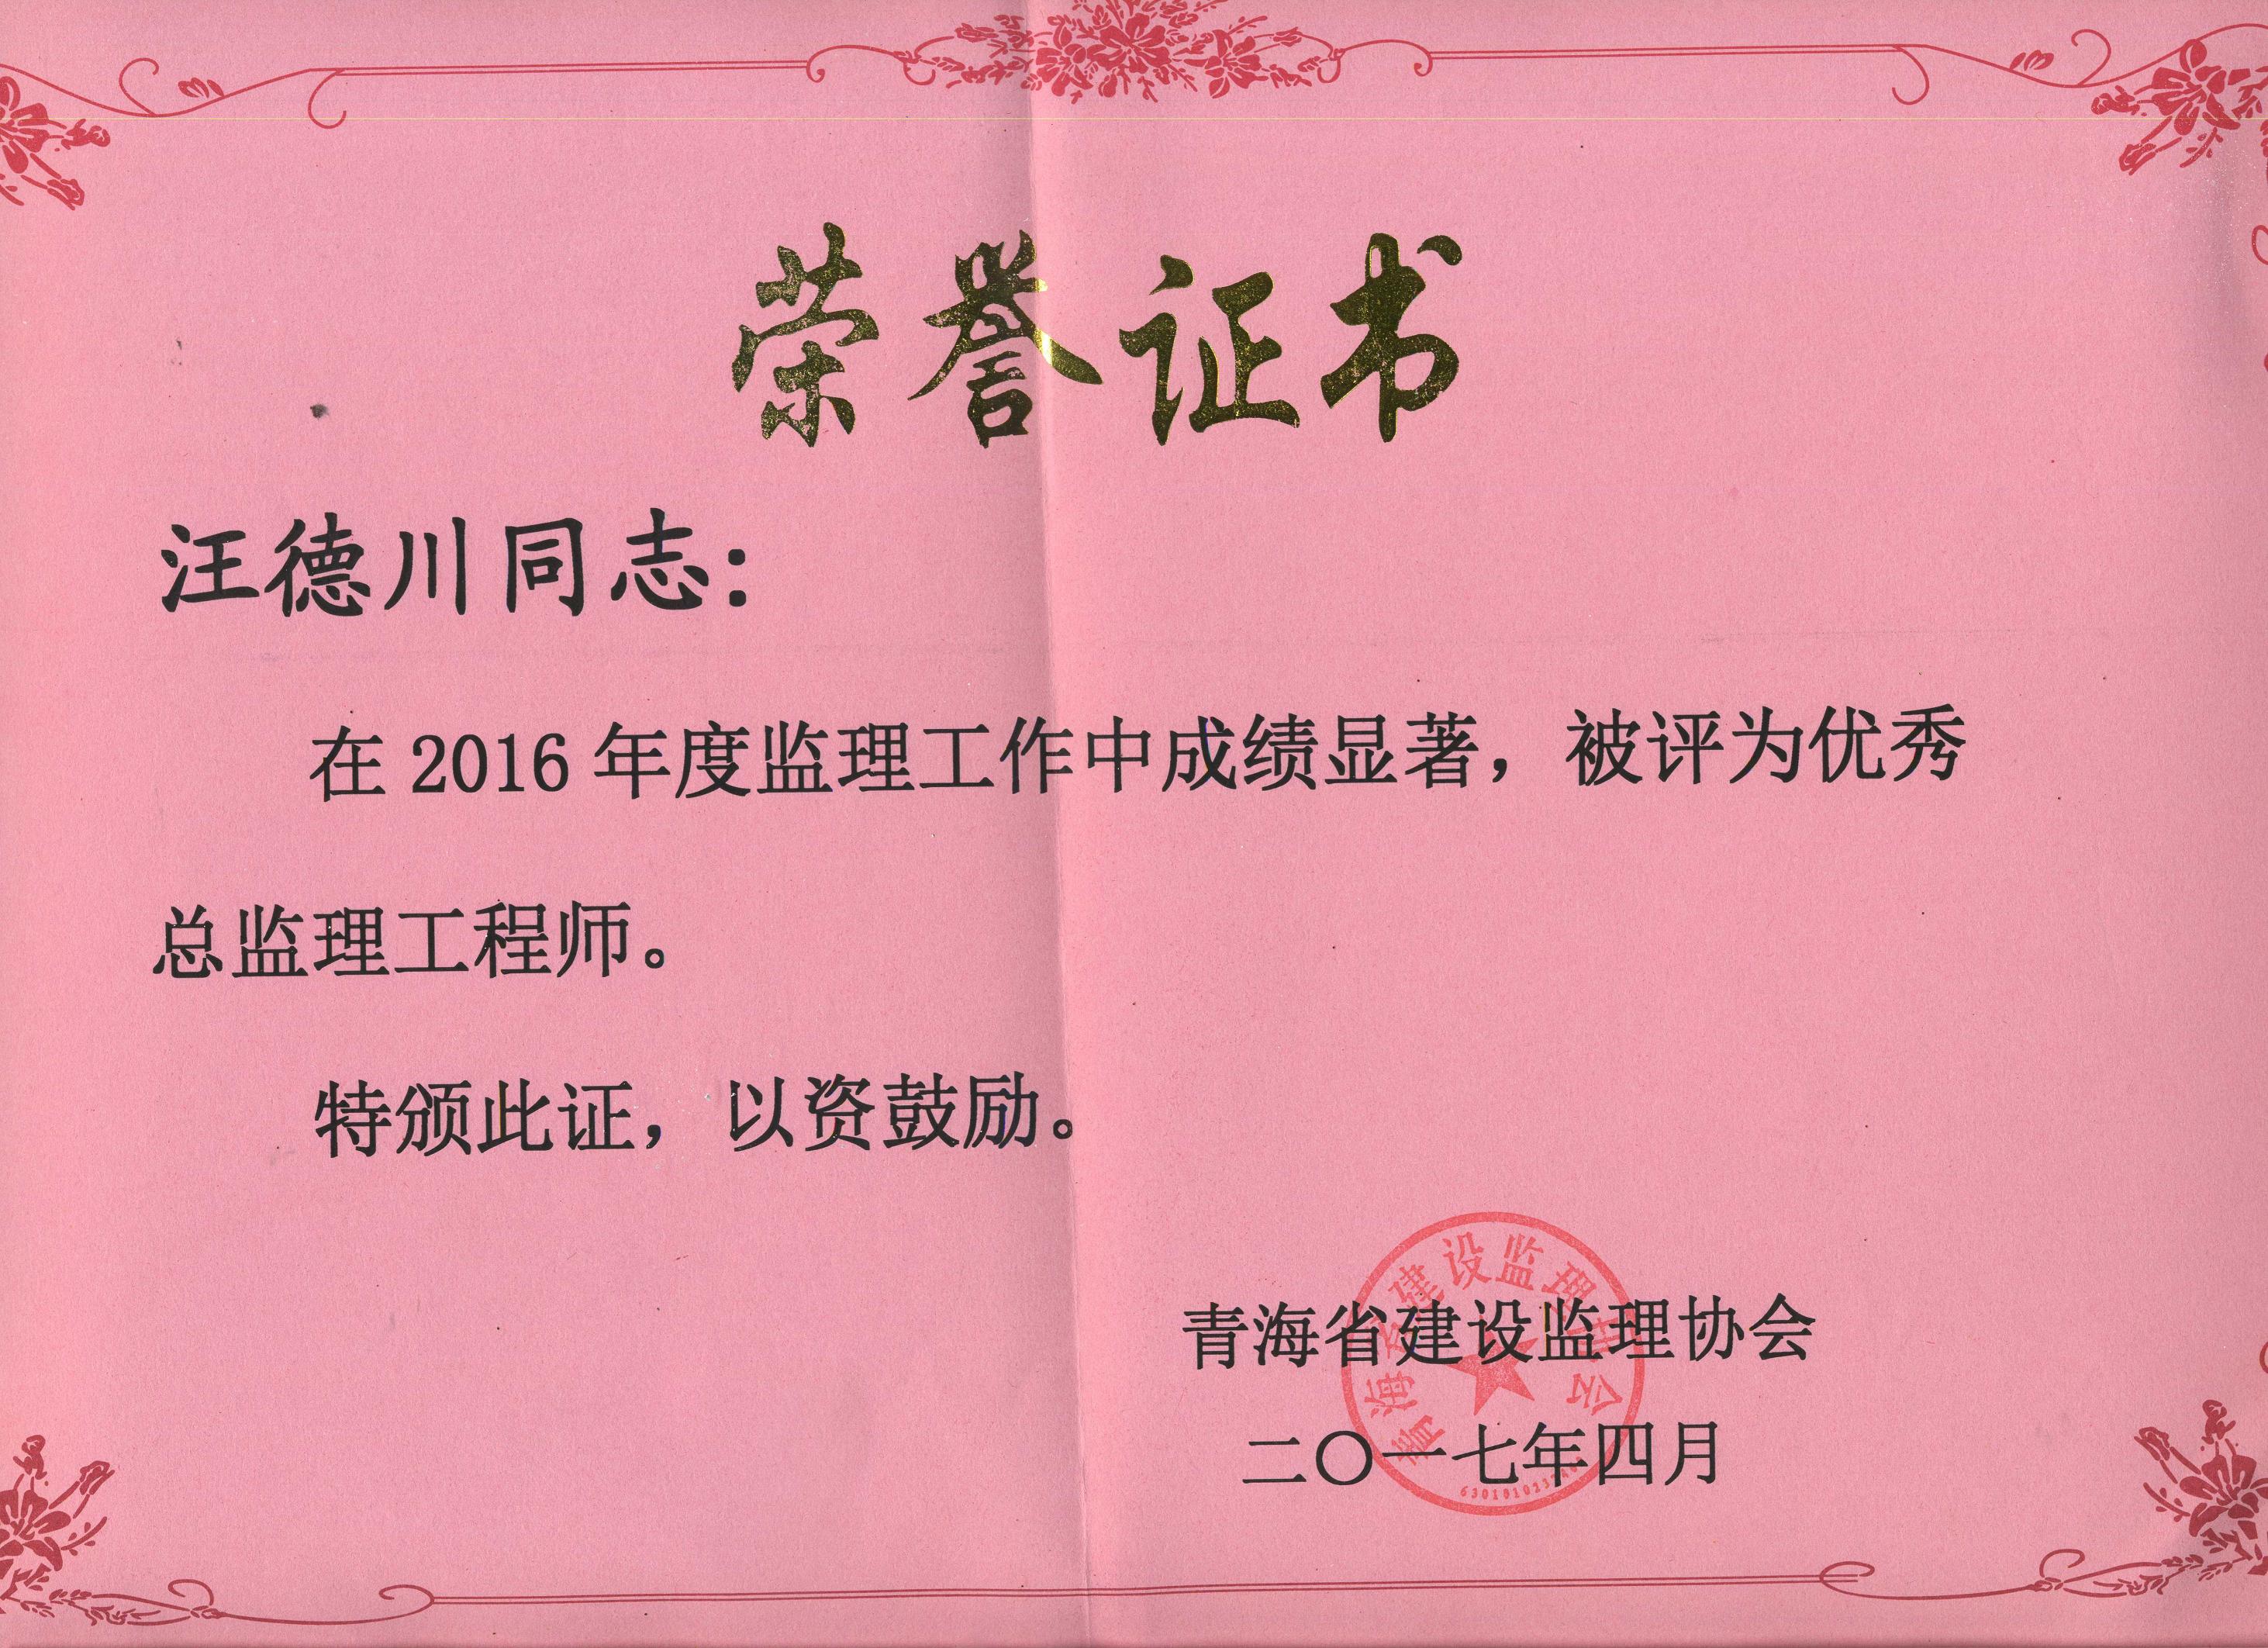 荣誉证书
汪德川同志：
在2016年度监理工作中成绩显著，被评为优秀
总监理工程师。
特颁此证，以资鼓励。
青海省建设监理协会
二〇一七年四月
青海省建设监理协会